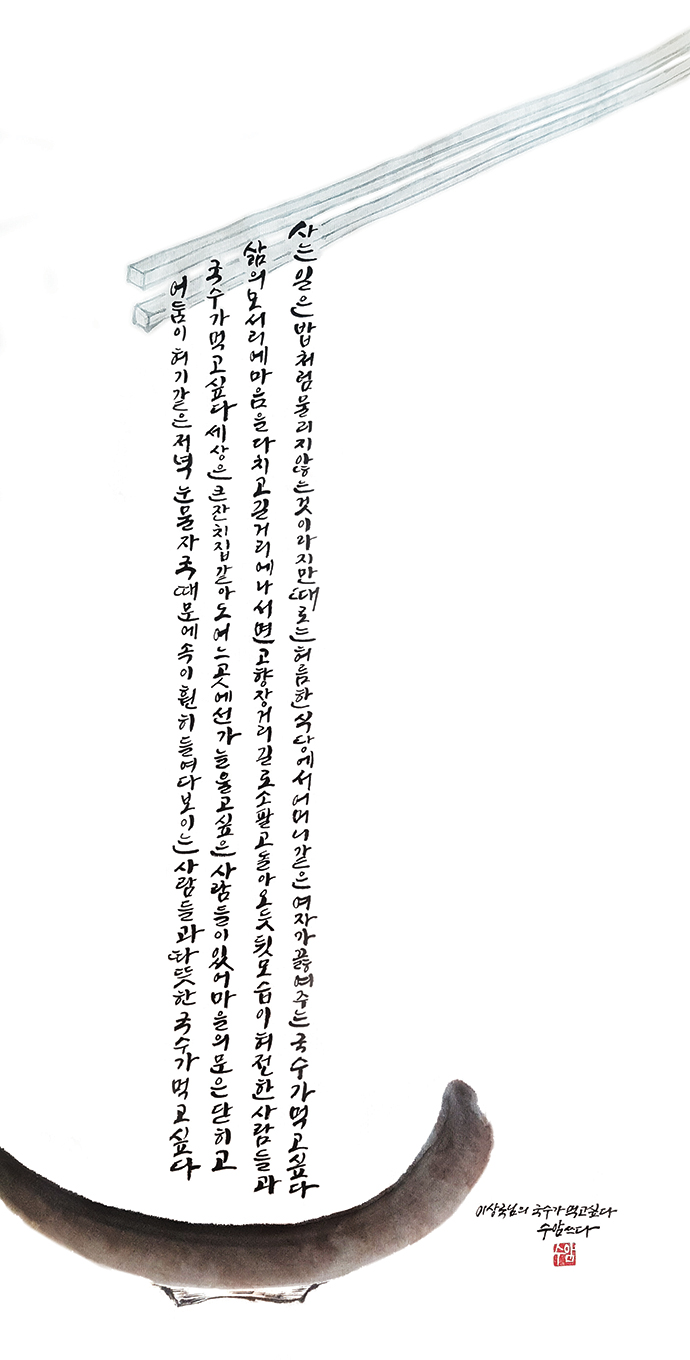 사는 일은 밥처럼 물리지 않는 것이라지만 때로는 허름한 식당에서 어머니 같은 여자가 끓여주는 국수가 먹고 싶다
삶의 모서리에 마음을 다치고 길거리에 나서면 고향 장거리 길로 소 팔고 돌아오듯 뒷모습이 허전한 사람들과
국수가 먹고 싶다 세상은 큰 잔치집 같아도 어느 곳에선가 늘 울고 싶은 사람들이 있어 마을의 문은 닫히고
어둠이 허기 같은 저녁 눈물자국 때문에 속이 훤히 들여다보이는 사람들과 따뜻한 국수가 먹고 싶다
이상국님의 국수가 먹고싶다
수암 쓰다
수암